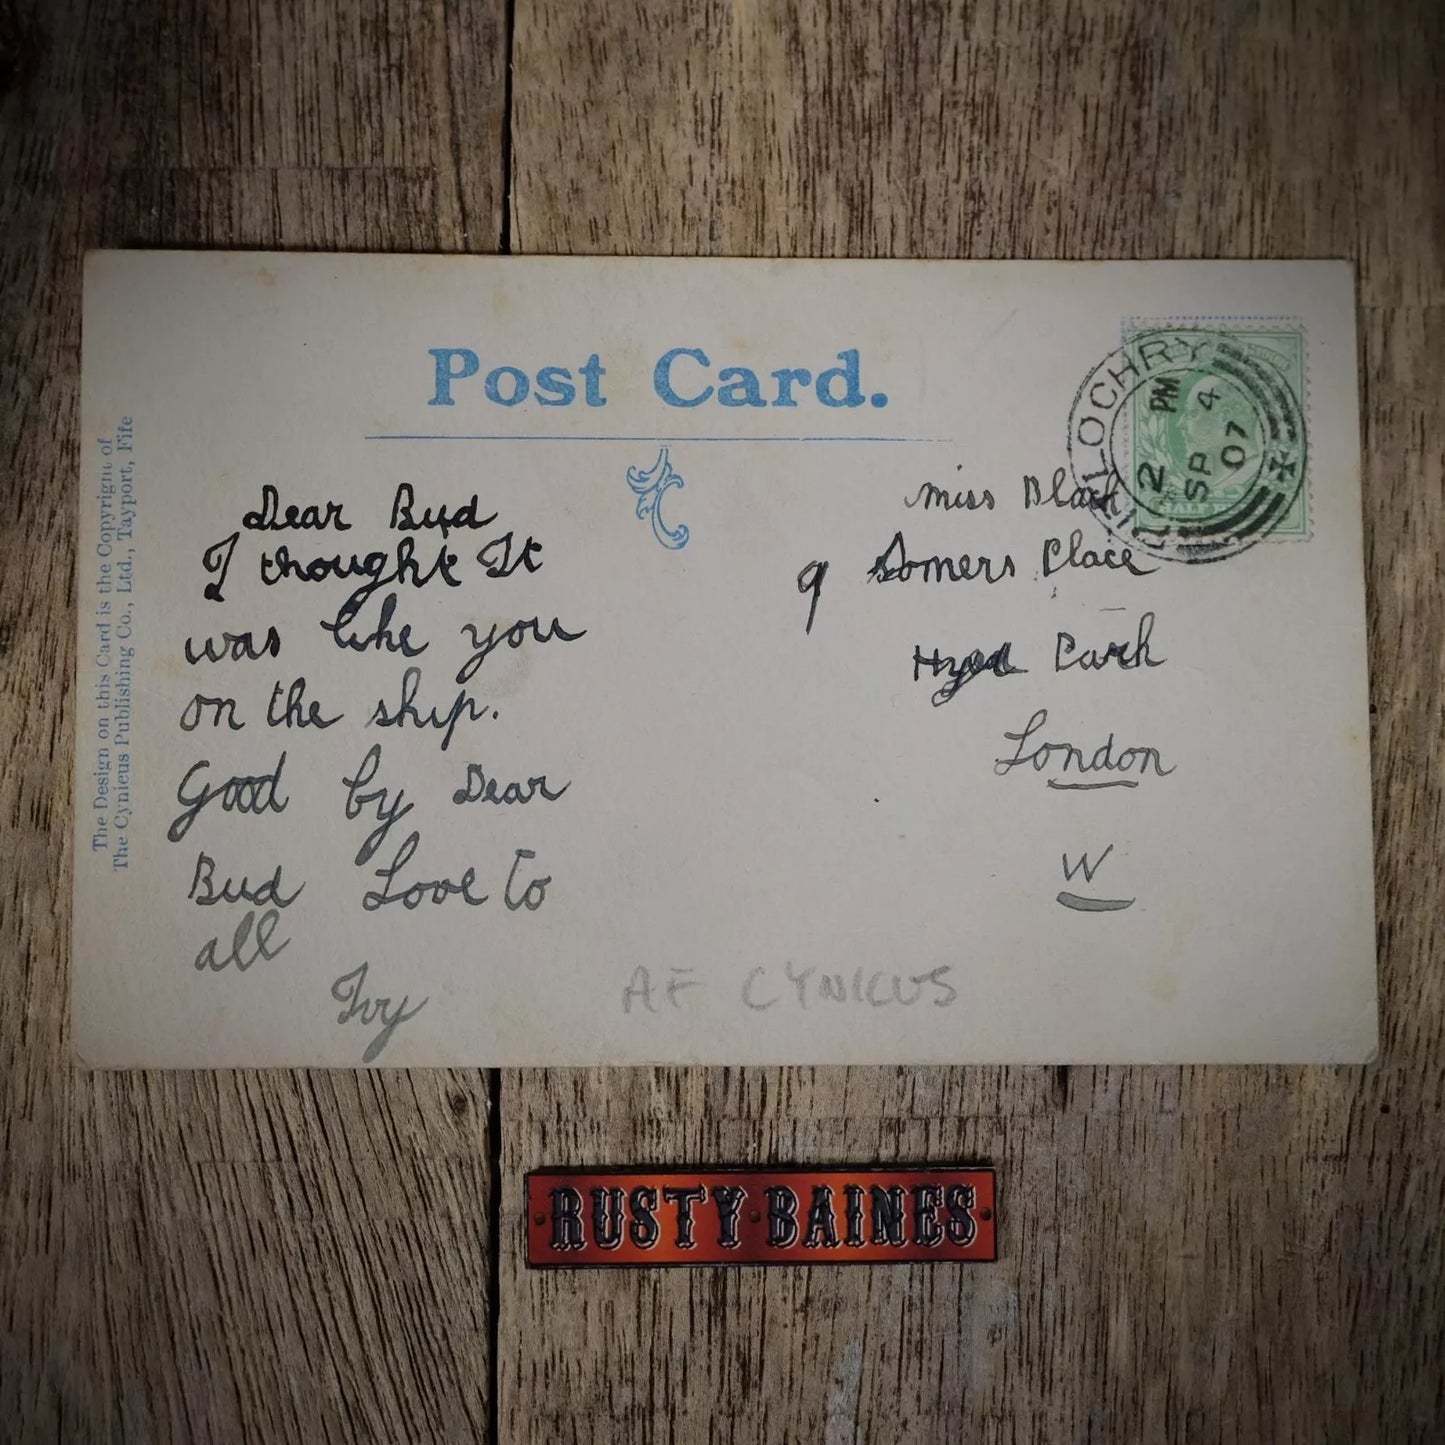 Post Card.
The Design on this Card is the Copyright of
The Cynicus Publishing Co., Ltd., Tayport, Fife
Dear Bud
I thought It
was like you
on the ship.
Good by Dear
Bud Love to
all
Ivy
Miss Black
9 Somers Place
Hyde Park
London
W
PITLOCHRY
2 PM
SP 4
07
HALF
AF CYNICUS
RUSTY BAINES